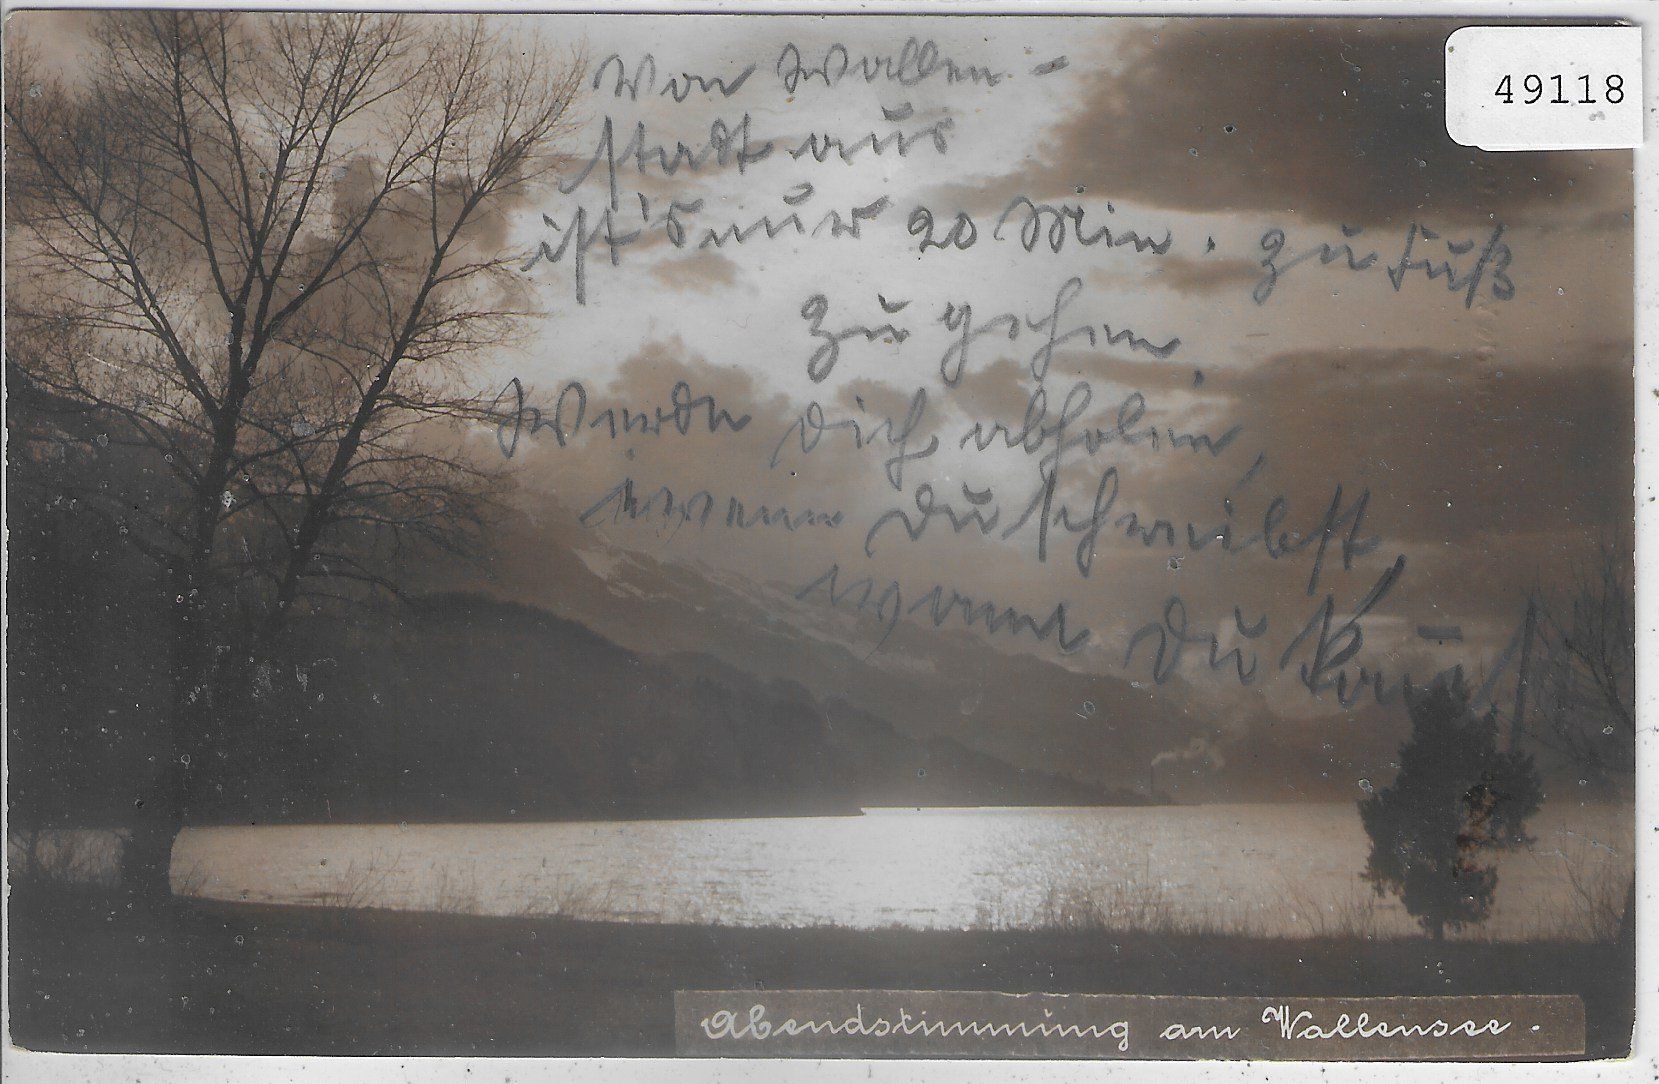 49118
Von Wallen-
stadt aus
ist's nur 20 Min. zu Fuß
zu gehen.
Werde dich abholen,
wenn du schreibst,
wann du
Abendstimmung am Wallensee.